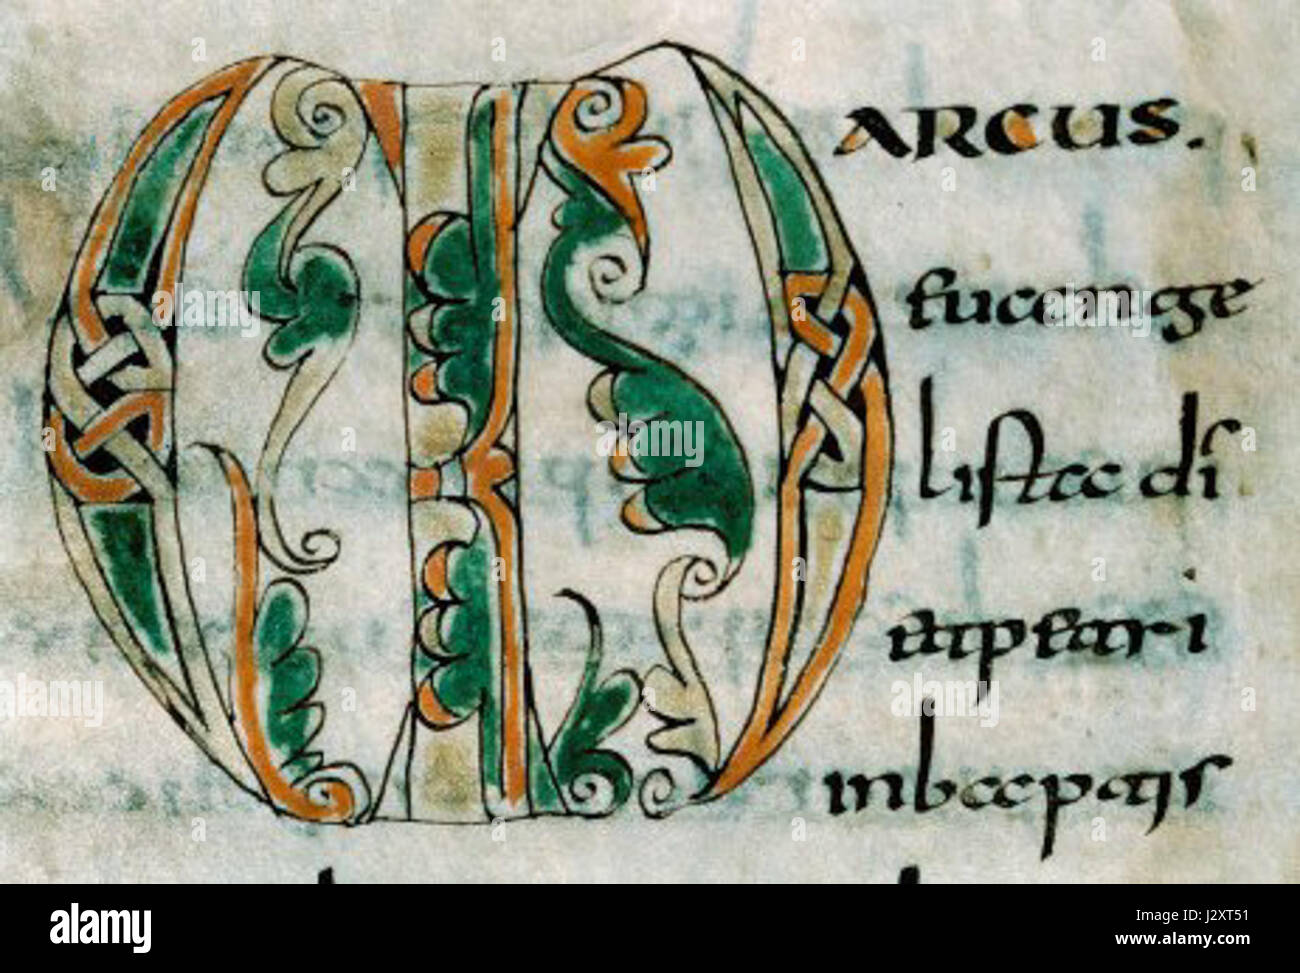 MARCUS.
euange
lista di
et petri
in baptis
alamy
Image ID: J2XT51
www.alamy.com